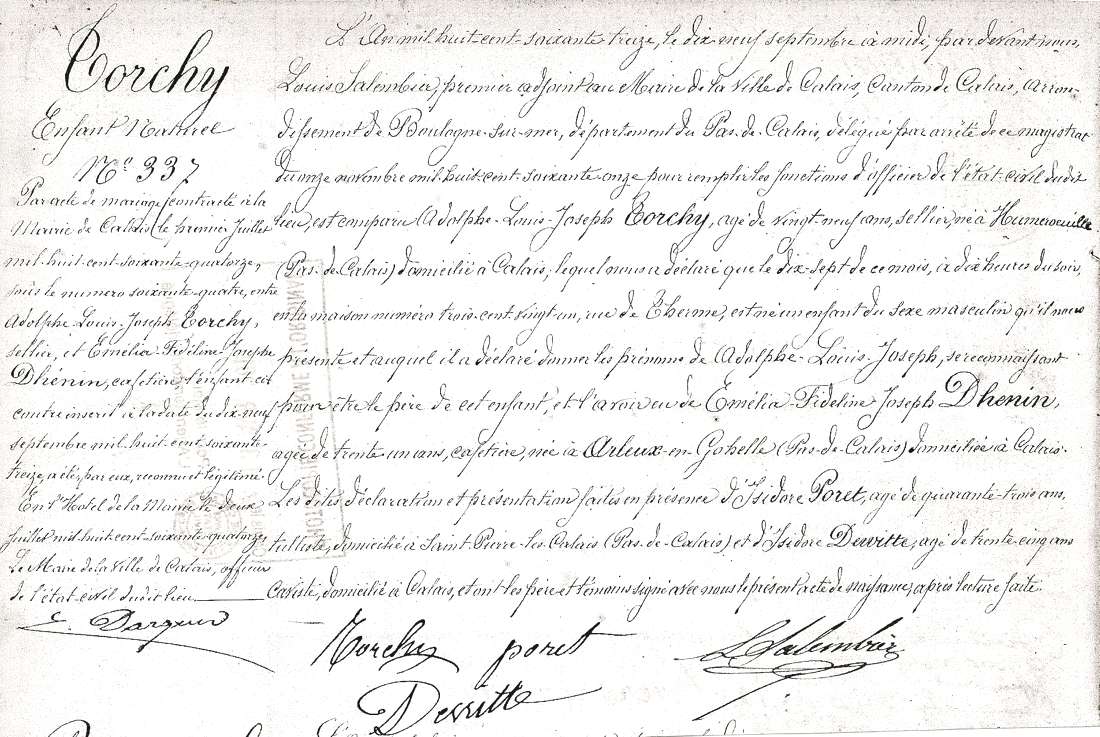 Torchy
Enfant Naturel
N° 337
Par acte de mariage contracté à la
Mairie de Calais le premier Juillet
mil-huit-cent-soixante-quatorze,
sous le numero soixante-quatre, entre
Adolphe-Louis-Joseph Torchy,
sellier, et Emélia-Fidéline-Joseph
Dhénin, cafetière l'enfant ci-
contre inscrit à la date du dix-neuf
septembre mil-huit-cent-soixante-
treize, a été, par eux, reconnu et légitimé.
En l'Hotel de la Mairie le deux
Juillet mil-huit-cent-soixante-quatorze
Le Maire de la Ville de Calais, officier
de l'état-civil dudit lieu
L'An mil-huit-cent-soixante-treize, le dix-neuf septembre à midi, par devant nous,
Louis Salembier, premier adjoint au Maire de la Ville de Calais, Canton de Calais, arron-
dissement de Boulogne-sur-mer, département du Pas-de-Calais, délégué par arrêté de ce magistrat
du onze novembre mil-huit-cent-soixante-onze pour remplir les fonctions d'officier de l'état-civil dudit
lieu, est comparu Adolphe-Louis-Joseph Torchy, agé de vingt-neuf ans, sellier, né à Humeroeuille
(Pas-de-Calais) domicilié à Calais, lequel nous a déclaré que le dix-sept de ce mois, à dix heures du soir,
en la maison numéro trois-cent-vingt-un, rue de Thermes, est né un enfant du sexe masculin qu'il nous
présente et auquel il a déclaré donner les prénoms de Adolphe-Louis-Joseph, se reconnaissant
pour être le père de cet enfant, et l'avoir eu de Emélia-Fideline Joseph Dhenin,
agée de trente-un ans, cafetière, née à Arleux-en-Gohelle (Pas-de-Calais) domiciliée à Calais.
Les dites déclaration et présentation faites en présence d'Isidore Poret, agé de quarante-trois ans,
tulliste, domicilié à Saint-Pierre-les-Calais (Pas-de-Calais) et d'Isidore Dewitte, agé de trente-cinq ans
domicilié à Calais, et ont les père et témoins signé avec nous le présent acte de naissance, après lecture faite.
Torchy poret L Salembier
Dewitte